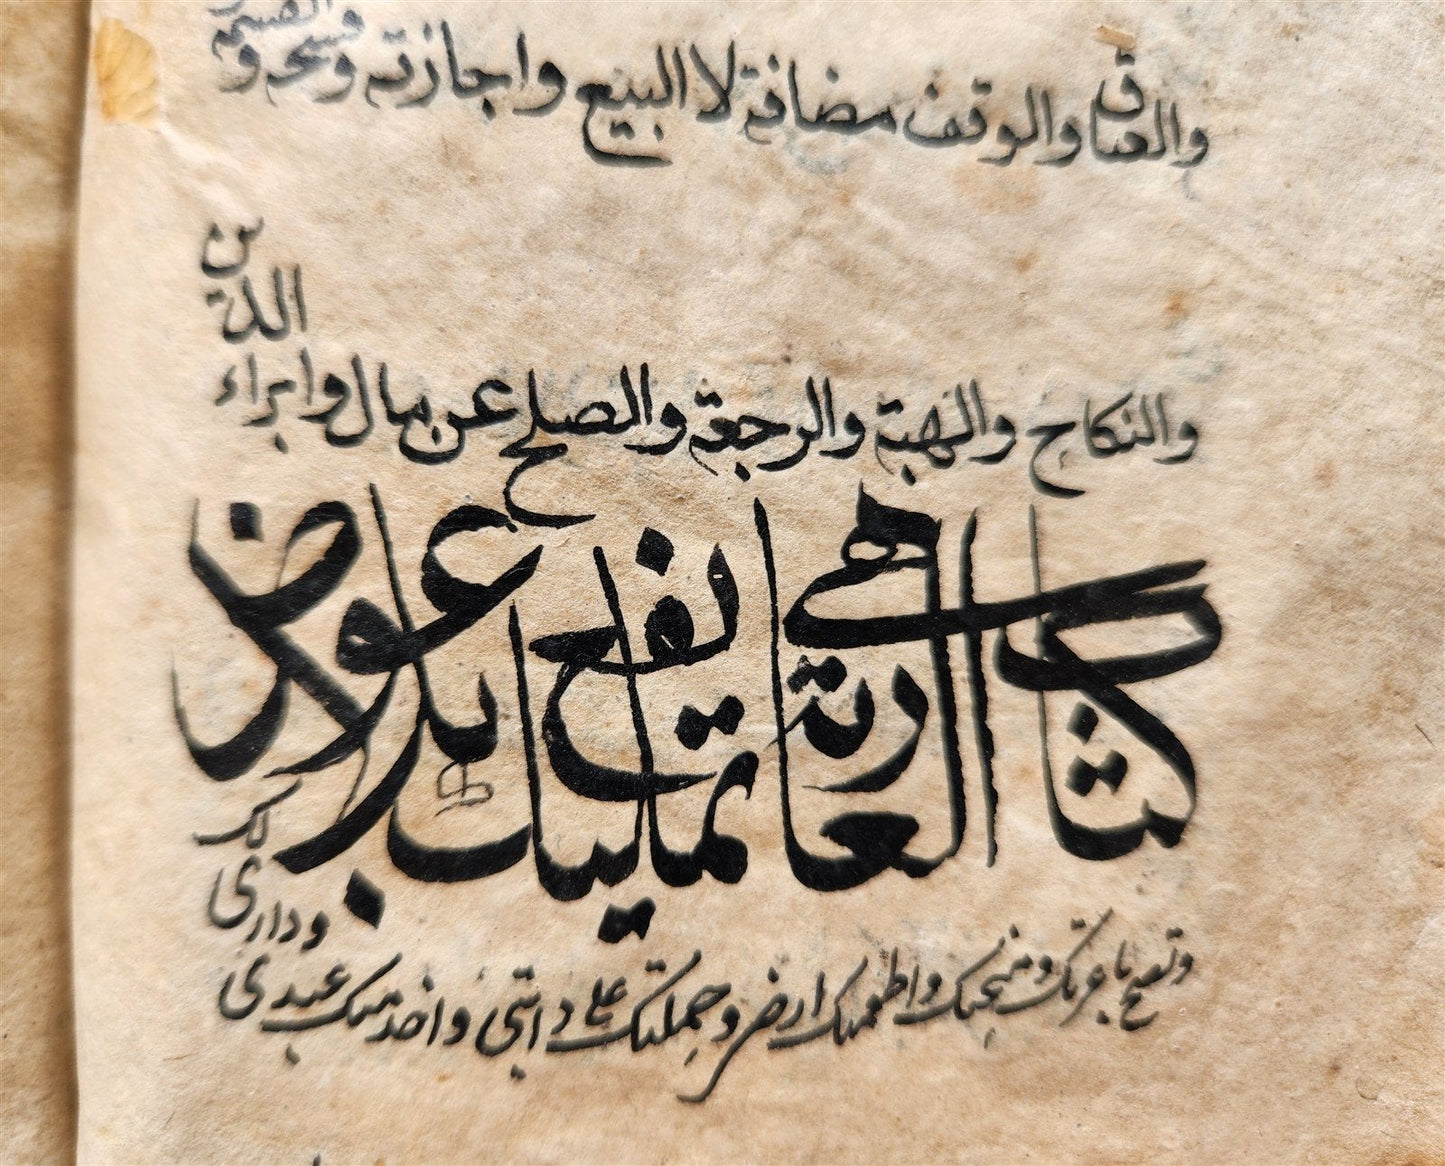 والعتاق والوقف مضافة لا البيع واجازته وفسخه والقسمة
والنكاح والهبة والرجعة والصلح عن مال وابراء الدين
كتاب العارية هي تمليك نفع بلا عوض
وتصح باعرتك ومنحتك واطعمتك ارضي وحملتك على دابتي واخدمتك عبدي وداري لك